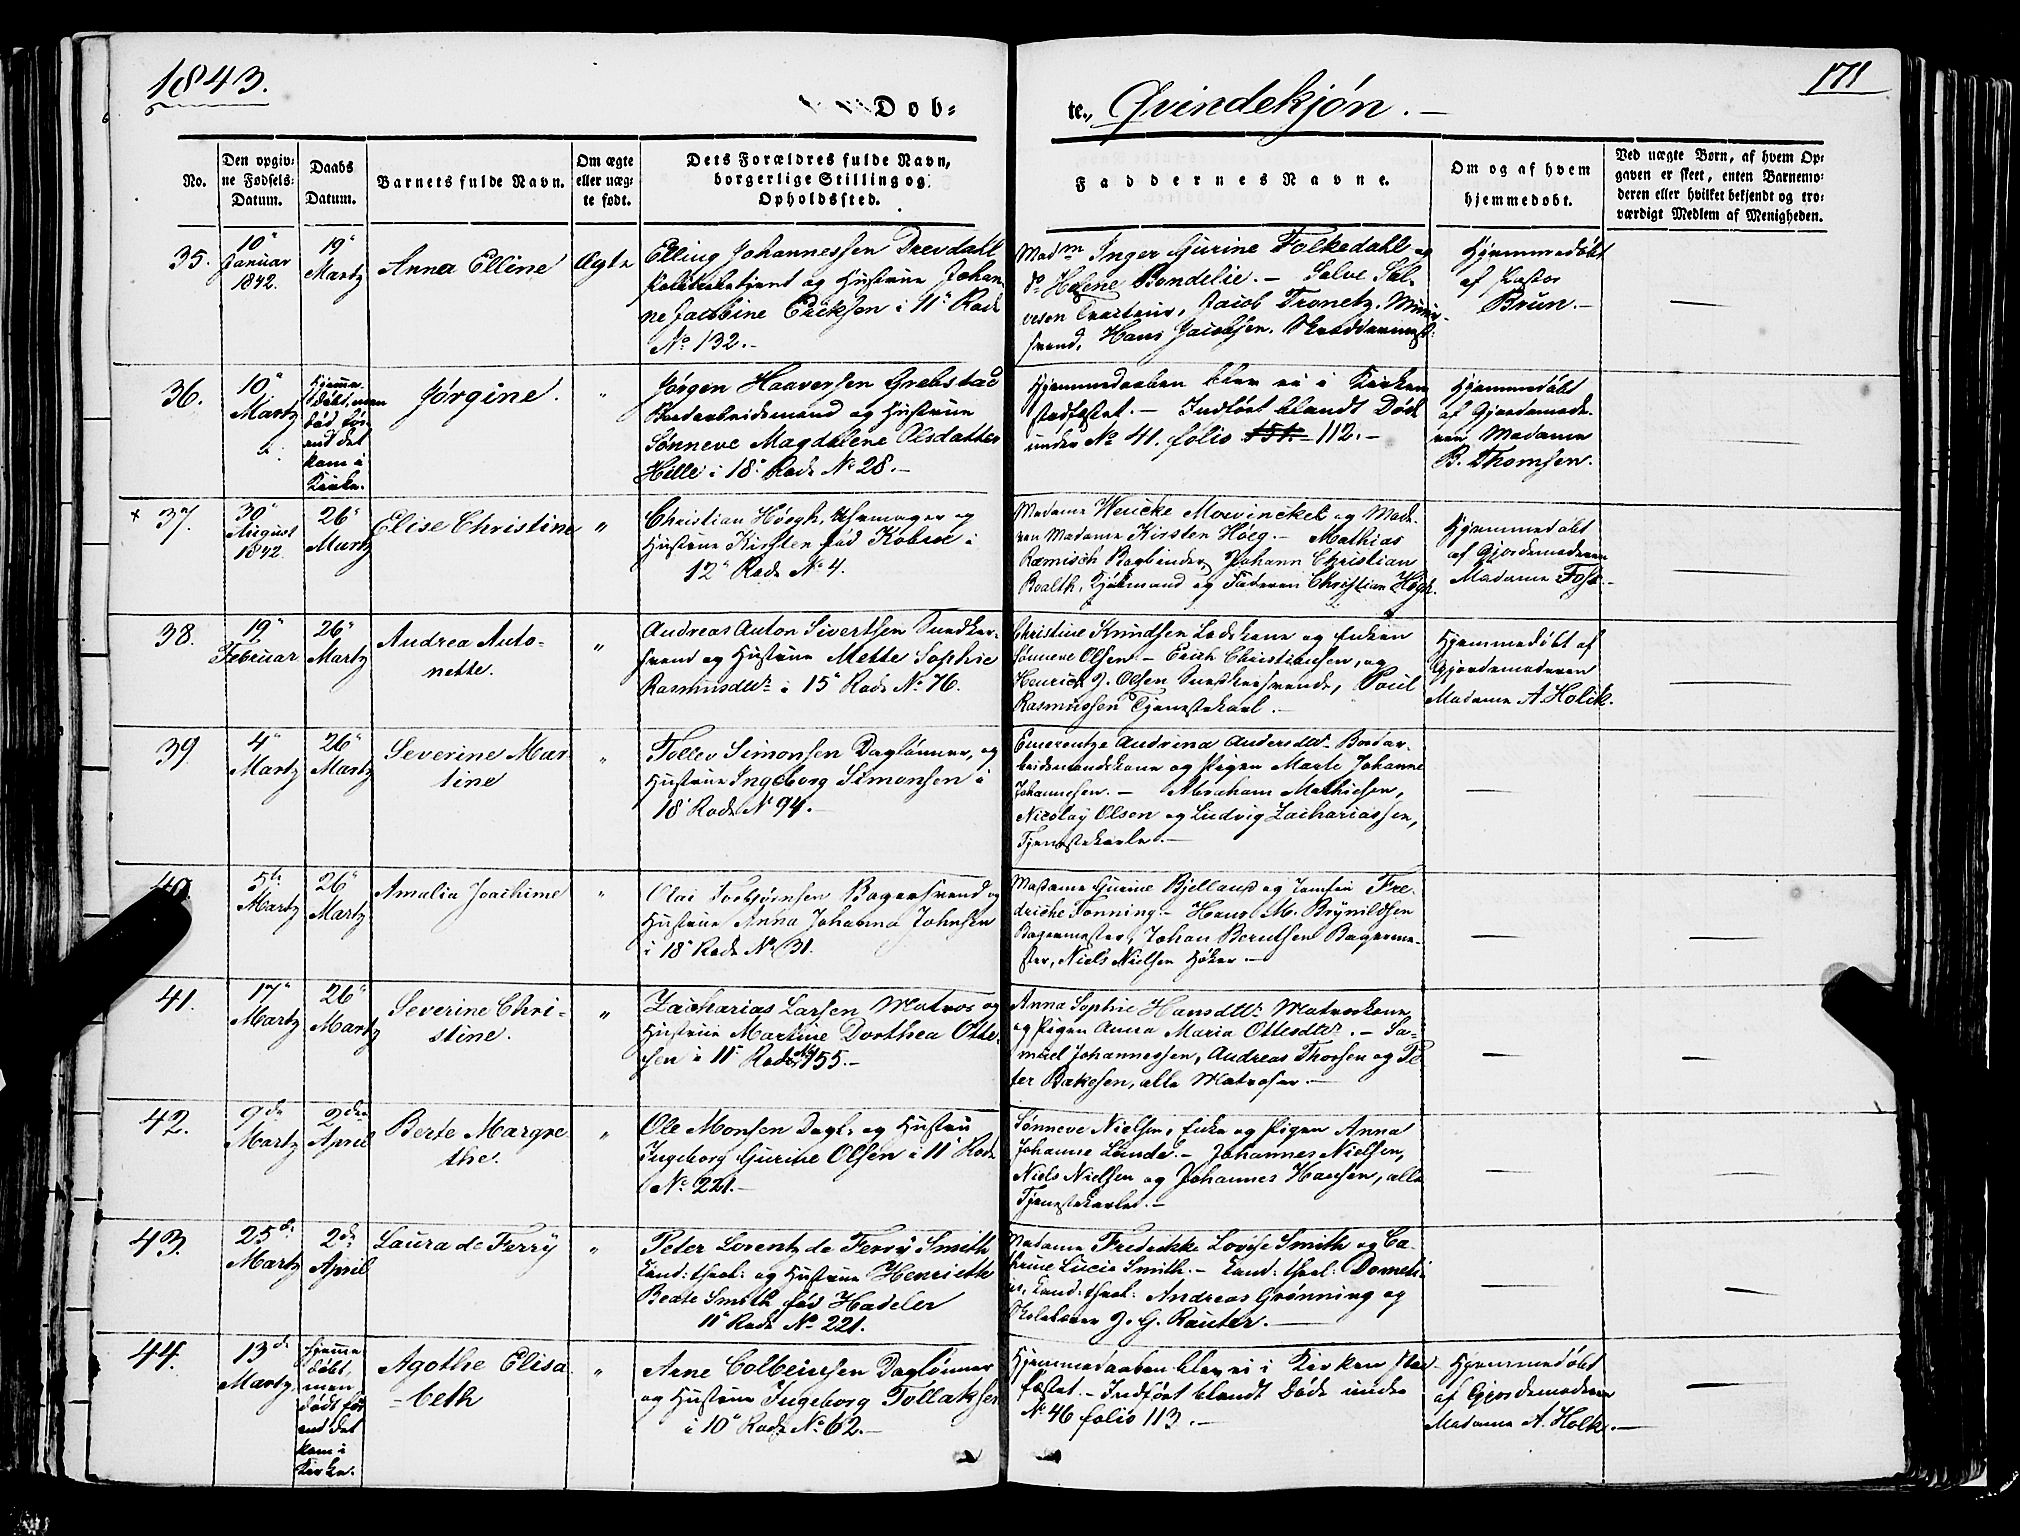 1843.
171
Dob-
te, Qvindekjón. —
No.
Den opgiv-
ne Fødsels-
Datum.
Daabs
Datum.
Barnets fulde Navn.
Om ægte
eller uæg-
te født.
Dets Forældres fulde Navn,
borgerlige Stilling og
Opholdssted.
Faddernes Navne.
Om og af hvem
hjemmedøbt.
Ved uægte Børn, af hvem Op-
gaven er skeet, enten Barnemo-
deren eller hvilket bekjendt og tro-
værdigt Medlem af Menigheden.
35.
10
Januar
1842.
19
Martz
Anna Elline
Ægte
Elling Johannessen Drevdahl
Politibetjent og Hustrue Johan-
ne Jacobine Ericksen i 11 Rode
No 132. —
Madm Inger Gurine Folkedahl og
do Helene Bondelie. — Salve Sal-
vesen Tracteur, Jacob Tronetz, Muur-
svend, Hans Jacobsen, Skreddermest:
Hjemmedøbt
af Pastor
Brun. —
36.
10
Martz
Hjemme-
døbt, men
død for-
end det
kom i
Kirke.
Jørgine.
"
Jørgen Haaversen Grebstad
Bordarbeidsmand og Hustrue
Sønneve Magdalene Olsdatter
Hille i 18 Rode No 28. —
Hjemmedaaben blev ei i Kirken
stadfæstet. — Indført blandt Døde
under No 41. folio 151. 112. —
Hjemmedøbt
af Gjordemode-
ren Madame
B. Thomsen.
+ 37.
30
August
1842.
26
Martz
Elise Christine
"
Christian Høegh, Uhrmager og
Hustrue Kirsten fød Kobroe i
12 Rode No 4.
Madame Wencke Mowinckel og Mode-
ren Madame Kirsten Høeg. — Mathias
Ræmisch Bogbinder, Johann Christian
Boalth, Kjøbmand og Faderen Christian Høgh.
Hjemmedøbt
af Gjordemoderen
Madame Foss. —
38.
19
Februar
26
Martz
Andrea Anto-
nette.
"
Andreas Anton Sivertsen Snedker-
svend og Hustrue Mette Sophie
Rasmusdtr i 15 Rode No 76.
Christine Knudsen Loskone og Enken
Sønneve Olsen — Erich Christiansen, og
Henrich J. Olsen Snedkersvende, Poul
Rasmussen Tjenestekarl. —
Hjemmedøbt af
Gjordemoderen
Madame A. Holck.
39
4
Martz
26
Martz
Severine Mar-
tine
"
Tollev Simonsen Daglønner, og
Hustrue Ingeborg Simonsen i
18 Rode No 94. —
Emerentze Andrina Andersdtr Bordar-
beidsmandskone og Pigen Marte Johanne
Johannesen. — Abraham Mathiesen,
Nicolay Olsen og Ludvig Zachariassen,
Tjenestekarle. —
40.
5te
Martz
26
Martz
Amalia Joachime
"
Olai Torbjørnsen Bagersvend og
Hustrue Anna Johanna Johnsen
i 18 Rode No 31.
Madame Gurine Bjelland og Jomfru Fre-
driche Fonning. — Hans M. Brynildsen
Bagermester, Johan Berntsen Bagerme-
ster, Niels Nielsen Høker. —
41.
17
Martz
26
Martz
Severine Chri-
stine.
"
Zacharias Larsen Matros og
Hustrue Martine Dorthea Otte-
sen i 11 Rode No 155. —
Anna Sophie Hansdtr Matroskone
og Pigen Anna Maria Ottesdtr. — Sa-
muel Johannessen, Andreas Thorsen og Pe-
ter Bakesen, alle Matroser. —
42.
9de
Martz
2den
April
Berte Margre-
the.
"
Ole Monsen Dagl. og Hustru
Ingeborg Gurine Olsen i 11 Rode
No 221. —
Sønneve Nielsen, Enke og Pigen Anna
Johanne Lunde. — Johannes Nielsen,
Niels Nielsen og Johannes Hansen, alle
Tjenestekarle. —
43.
25de
Martz
2den
April
Laura de Ferry
"
Peter Lorentz de Ferry Smith
Cand: theol: og Hustrue Henriette
Beate Smith fød Hadeler
11 Rode No 221.
Madame Fredrikke Lovise Smith og Ca-
thrine Lucie Smith. — Cand: theol: Dometi-
us, Cand: theol: Andreas Grønning og
Skolelærer J. G. Reuter. —
44.
13de
Martz
Hjemme-
døbt
men
dødt for
end det
kom i
Kirke.
Agothe Elisa
-beth
"
Arne Colbeinsen Dagløner
og Hustrue Ingeborg Tollaksen
i 10 Rode No 62. —
Hjemmedaaben blev ei i Kirken stad-
fæstet. — Indført blandt Døde under
No 46 folio 113. —
Hjemmedøbt
af Gjordemoderen
Madame A. Holk. —